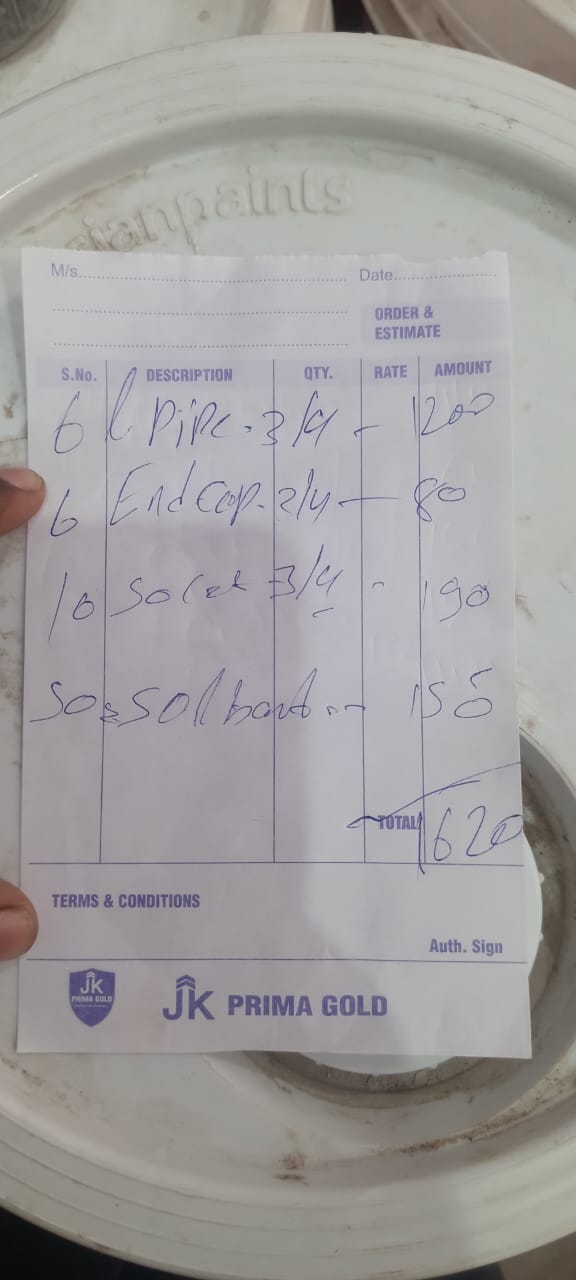 asianpaints
M/s.............................. Date....................
ORDER &
ESTIMATE
S.No. DESCRIPTION QTY. RATE AMOUNT
6 l Pipe - 3/4 - 1200
6 End Cap - 3/4 - 80
10 Socet 3/4 - 190
50 Sol 150
TOTAL 1620
TERMS & CONDITIONS
Auth. Sign
JK
PRIMA GOLD
JK PRIMA GOLD